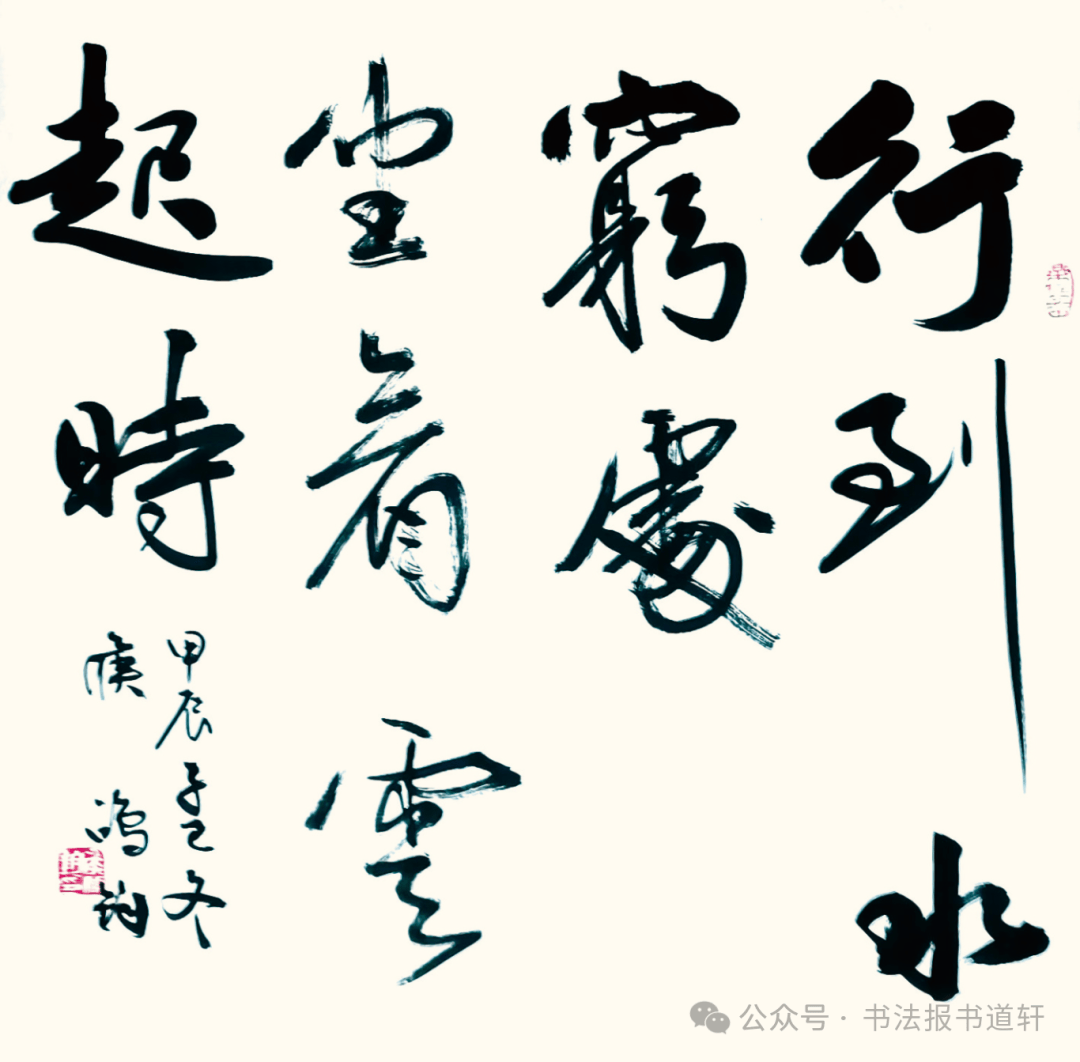 行到水
窮處
坐看雲
起時
甲辰孟冬
鳴鈞
公众号·书法报书道轩